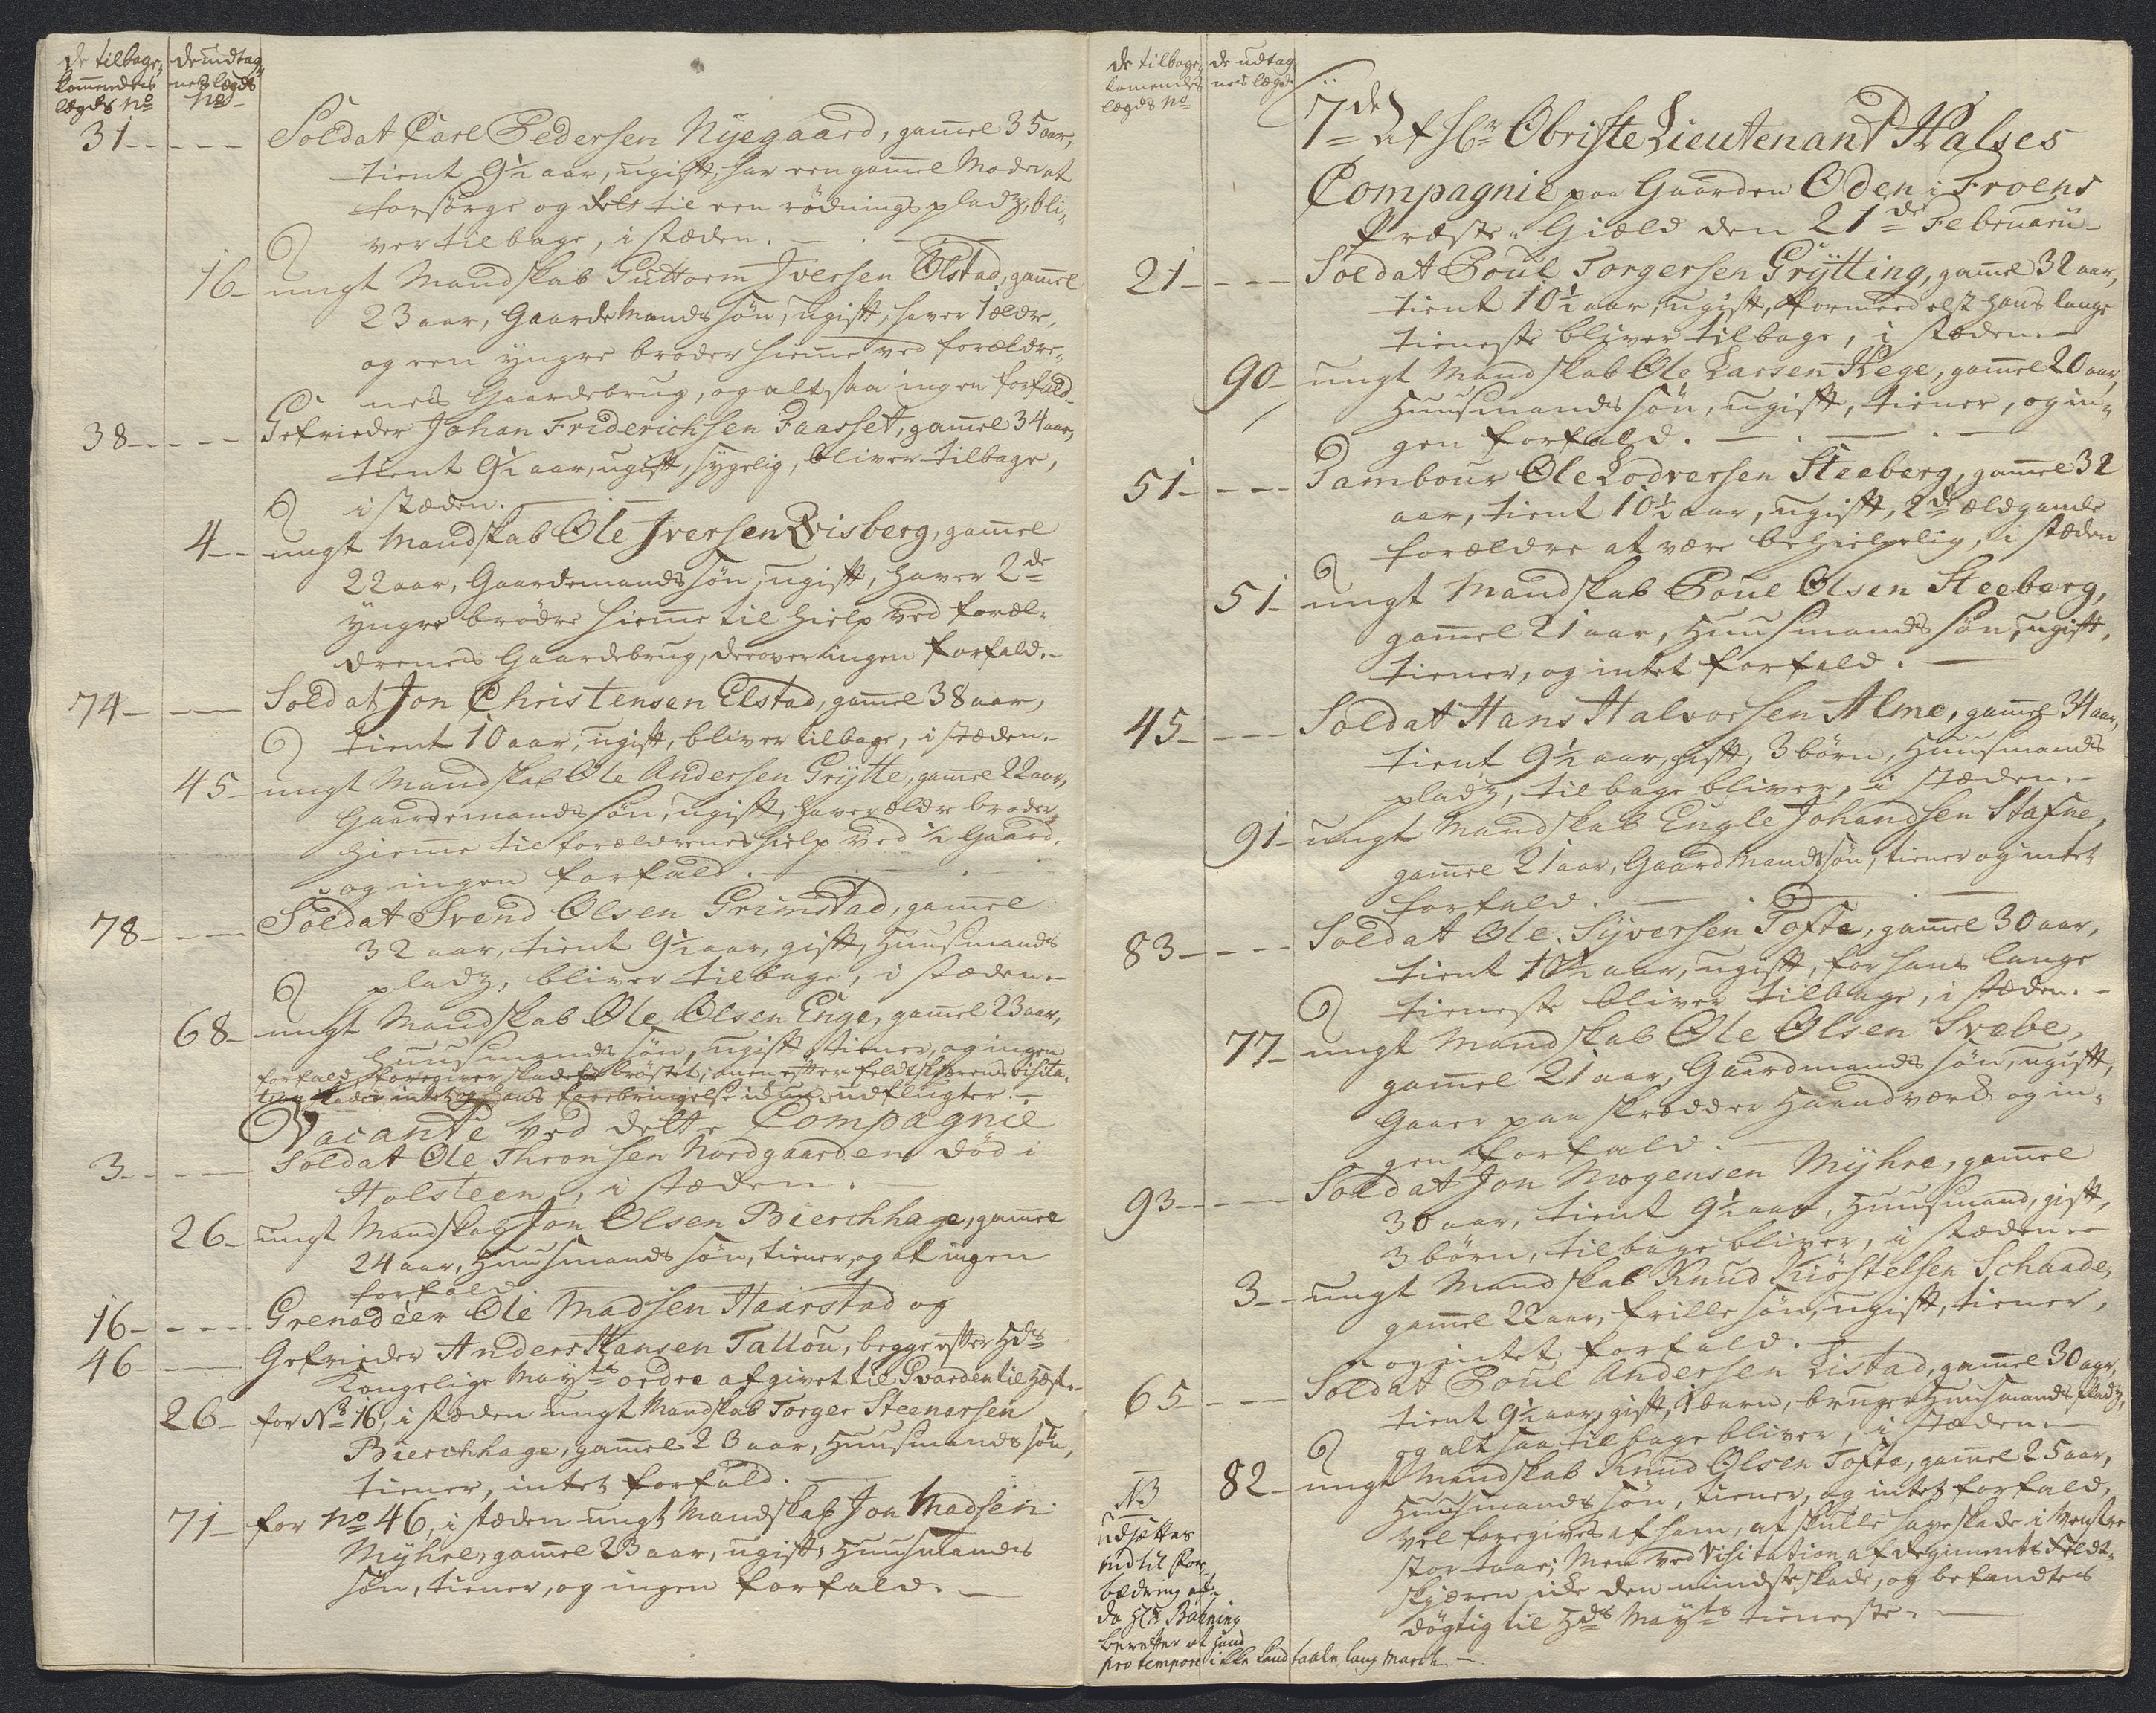 de tilbage, de udtag,
kommendes nes lægds
lægds No No
31 - Soldat Carl Pedersen Nyegaard, gammel 35 aar,
tient 9½ aar, ugift, har een gammel Moder at
forsørge og til een rødnings pladz, bli,
ver tilbage, i stæden.
16 - ungt Mandskab Guttorm Iversen Olstad, gammel
23 aar, Gaardemands søn, ugift, haver 1 ældre,
og een yngre broder hiemme ved forældre,
nes Gaardebrug, og altsaa ingen forfald.
38 - Gefrieder Johan Friderichsen Faasset, gammel 34 aar,
tient 9½ aar, ugift, sygelig, bliver tilbage,
i stæden.
4 - ungt Mandskab Ole Iversen Qvisberg, gammel
22 aar, Gaardemands søn, ugift, haver 2de
yngre brødre hiemme til hielp ved foræl-
drenes Gaardebrug, derover ingen forfald.
74 - Soldat Jon Christensen Elstad, gammel 38 aar,
tient 10 aar, ugift, bliver tilbage, i stæden.
45 - ungt Mandskab Ole Andersen Grytte, gammel 22 aar,
Gaardemands søn, ugift, haver ældre broder
hiemme til forældrenes hielp ved ½ Gaard,
og ingen forfald.
78 - Soldat Svend Olsen Grimstad, gammel
32 aar, tient 9½ aar, gift, Huusmands
pladz, bliver tilbage, i stæden.
68 - ungt Mandskab Ole Olsen Enge, gammel 23 aar,
Huusmands søn, ugift, tiener, og ingen
forfald, foregiver skade brøstet, men efter feldtskiærens visita,
tion intet og hans forebringelse udflugter.
Vacante ved dette Compagnie
3 - Soldat Ole Thronsen Nordgaarden død i
Holsteen, i stæden.
26 - ungt Mandskab Jon Olsen Bierchhage, gammel
24 aar, Huusmands søn, tiener, og at ingen
forfald
16 - Grenadeer Ole Madsen Haarstad og
46 - Gefrieder Anders Hansen Tallou, begge efter Hds
Kongelige Mayts ordre afgivet til Gvarden til Hest.
26 - for No 16, i stæden ungt Mandskab Torger Steenersen
Bierchhage, gammel 23 aar, Huusmands søn,
tiener, intet forfald.
71 - for No 46, i stæden ungt Mandskab Jon Madsen
Myhre, gammel 23 aar, ugift, Huusmands
søn, tiener, og ingen forfald.
de tilbage, de udtag,
komendes nes lægds
lægds No
7de af Hr Obriste Lieutenant Halses
Compagnie paa Gaarden Oden i Froens
Præste Giæld den 21de Februarii
21 - Soldat Poul Torgersen Grytting, gammel 32 aar,
tient 10½ aar, ugift, formedelst hans lange
tieneste bliver tilbage, i stæden.
90 - ungt Mandskab Ole Larsen Hege, gammel 20 aar,
Huusmands søn, ugift, tiener, og in,
gen forfald.
51 - Tambour Ole Lodversen Steeberg, gammel 32
aar, tient 10½ aar, ugift, 2de ælægamle
forældre at være behielpelig, i stæden
51 - ungt Mandskab Poul Olsen Steeberg,
gammel 21 aar, Huusmands søn, ugift,
tiener, og intet forfald.
45 - Soldat Hans Halvorsen Alme, gammel 34 aar,
tient 9½ aar, gift, 3 børn, Huusmands
pladz, tilbage bliver, i stæden.
91 - ungt Mandskab Engle Johandsen Stafne,
gammel 21 aar, Gaardmands søn, tiener og intet
forfald.
83 - Soldat Ole Syversen Tofte, gammel 30 aar,
tient 10½ aar, ugift, for hans lange
tieneste bliver tilbage, i stæden.
77 - ungt Mandskab Ole Olsen Svebe,
gammel 21 aar, Gaardmands søn, ugift,
Gaaer paa skrædder Haandværk og in-
gen forfald.
93 - Soldat Jon Mogensen Myhre, gammel
30 aar, tient 9½ aar, Huusmand, gift,
3 børn, tilbage bliver, i stæden.
3 - ungt Mandskab Knud Kiøstelsen Schaade,
gammel 22 aar, frille søn, ugift, tiener,
og intet forfald.
65 - Soldat Poul Andersen Listad, gammel 30 aar,
tient 9½ aar, gift, 1 barn, bruger Huusmands pladz,
og altsaa tilbage bliver, i stæden.
82 - ungt Mandskab Knud Olsen Tofte, gammel 25 aar,
Huusmands søn, tiener, og intet forfald,
vel foregives af ham, at skulle have skade i venstre
stor taae, Men ved Visitation af Regiments feldt-
skiæren ide den mindste skade, og befandtes
døgtig til Hds Mayts tieneste.
NB
udsættes
ind til for,
bedring
da Hr Bøening
beretter at hand
pro tempore ikke kand taale lang March.